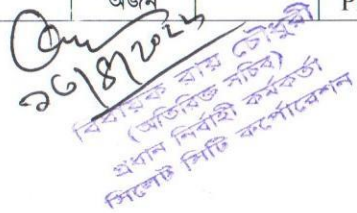 অর্জন
P
২৩/৪/২০২৫
বিধায়ক রায় চৌধুরী
(অতিরিক্ত সচিব)
প্রধান নির্বাহী কর্মকর্তা
সিলেট সিটি কর্পোরেশন